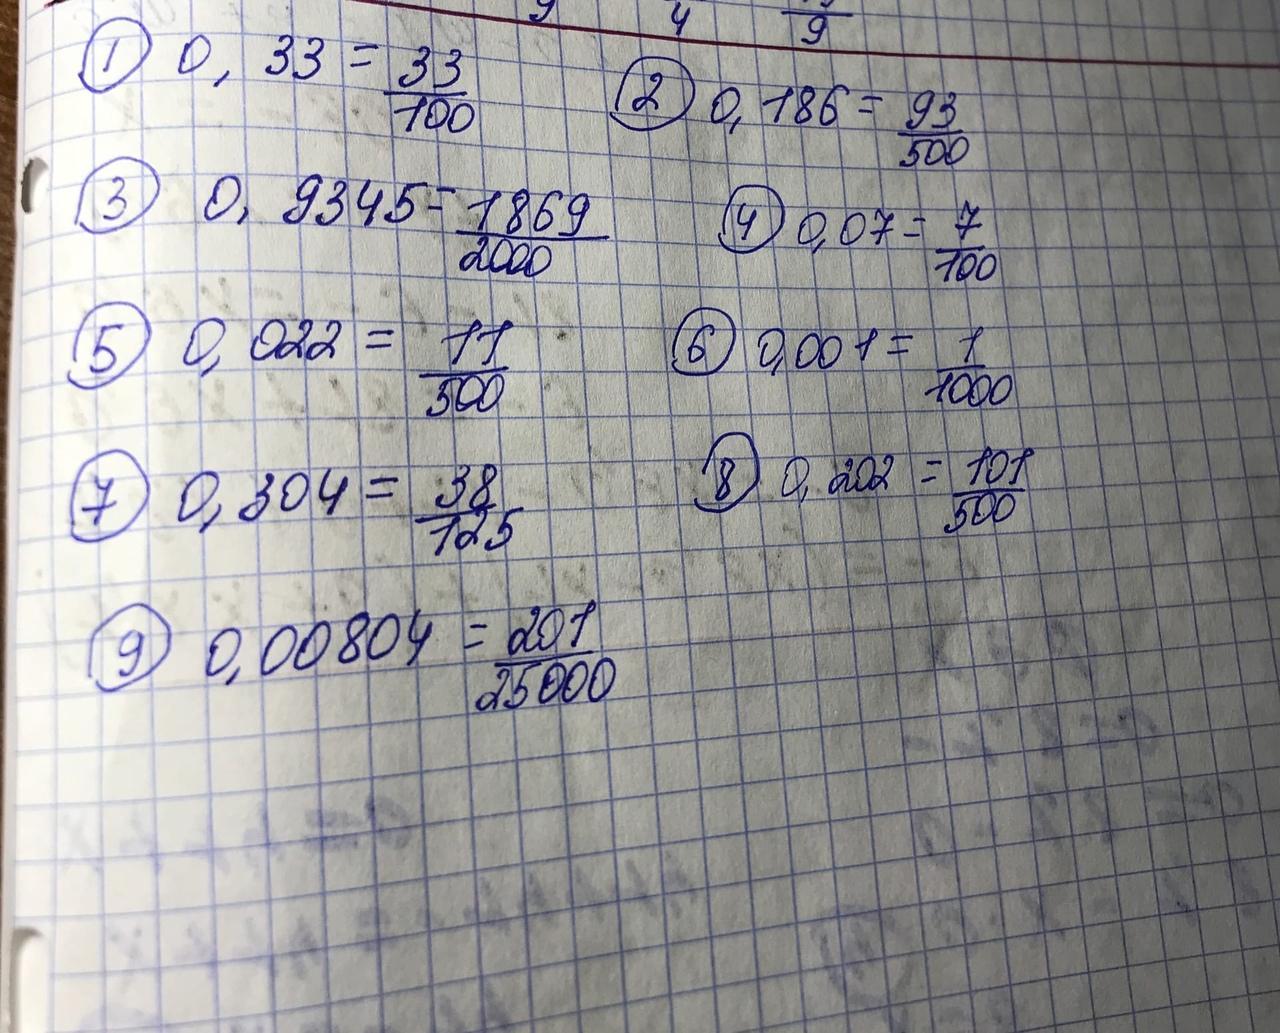 9 4 9
① 0, 33 = 33/100 ② 0,186 = 93/500
③ 0, 9345 = 1869/2000 ④ 0,07 = 7/100
⑤ 0,022 = 11/500 ⑥ 0,001 = 1/1000
⑦ 0,304 = 38/125 ⑧ 0,202 = 101/500
⑨ 0,00804 = 201/25000